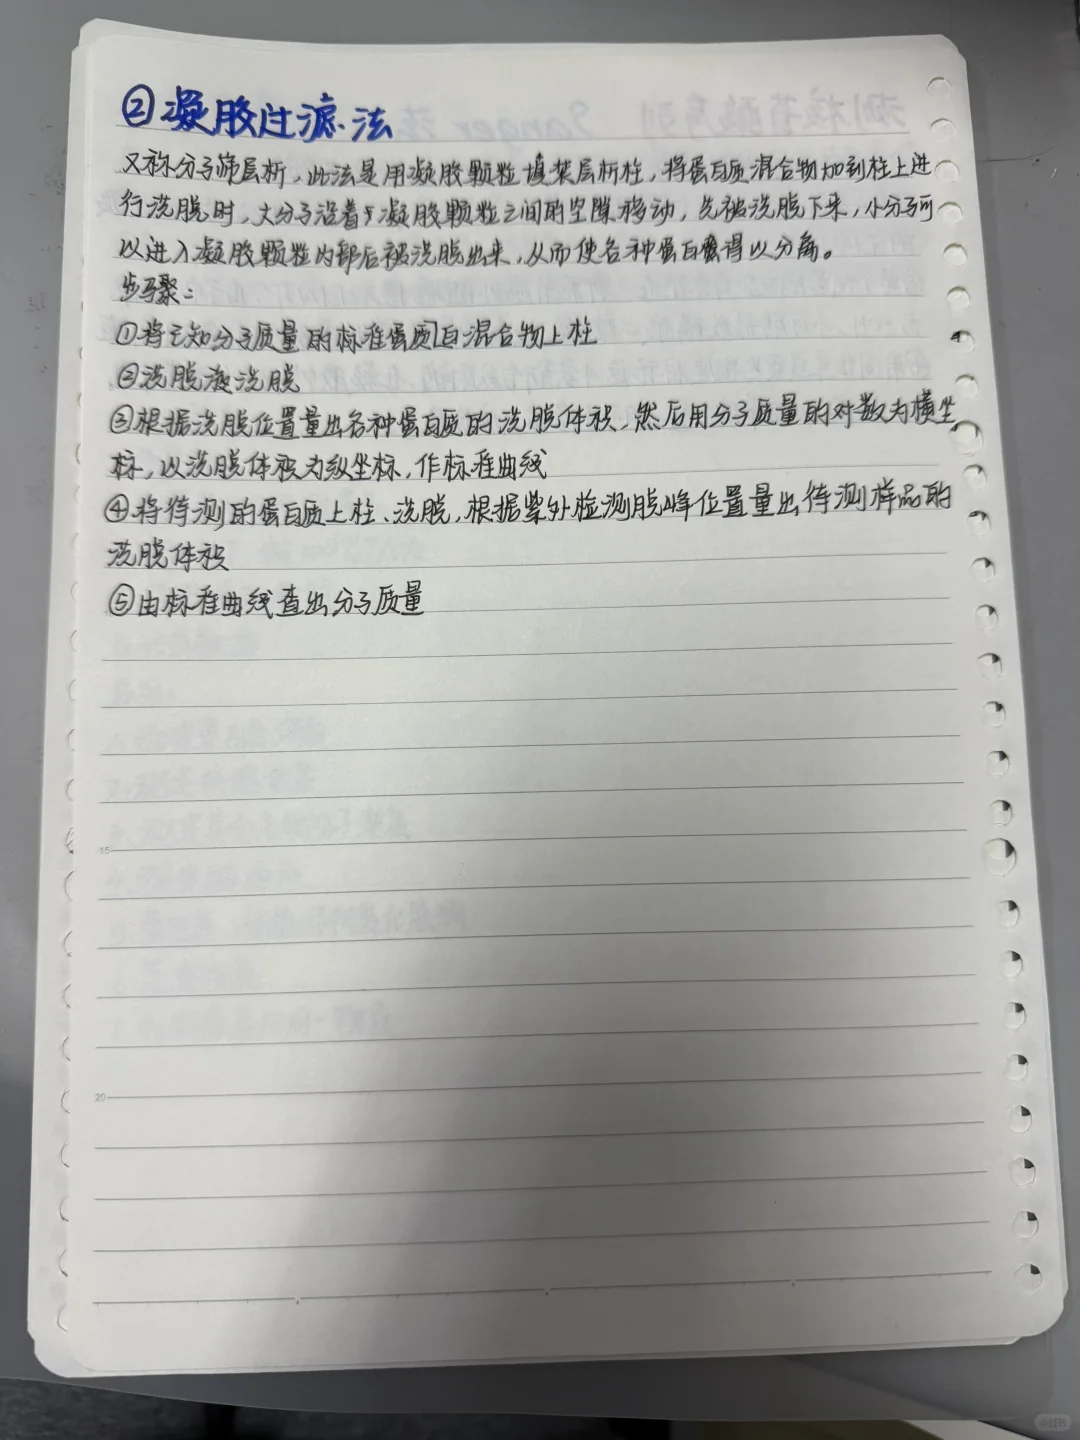 ②凝胶过滤法
又称分子筛层析，此法是用凝胶颗粒填装层析柱，将蛋白质混合物加到柱上进
行洗脱时，大分子沿着凝胶颗粒之间的空隙移动，先被洗脱下来，小分子可
以进入凝胶颗粒内部后被洗脱出来，从而使各种蛋白得以分离。
步骤：
①将已知分子质量的标准蛋质白混合物上柱
②洗脱液洗脱
③根据洗脱位置量出各种蛋白质的洗脱体积，然后用分子质量的对数为横坐
标，以洗脱体积为纵坐标，作标准曲线
④将待测的蛋白质上柱、洗脱，根据紫外检测脱峰位置量出待测样品的
洗脱体积
⑤由标准曲线查出分子质量
15
20
小红书